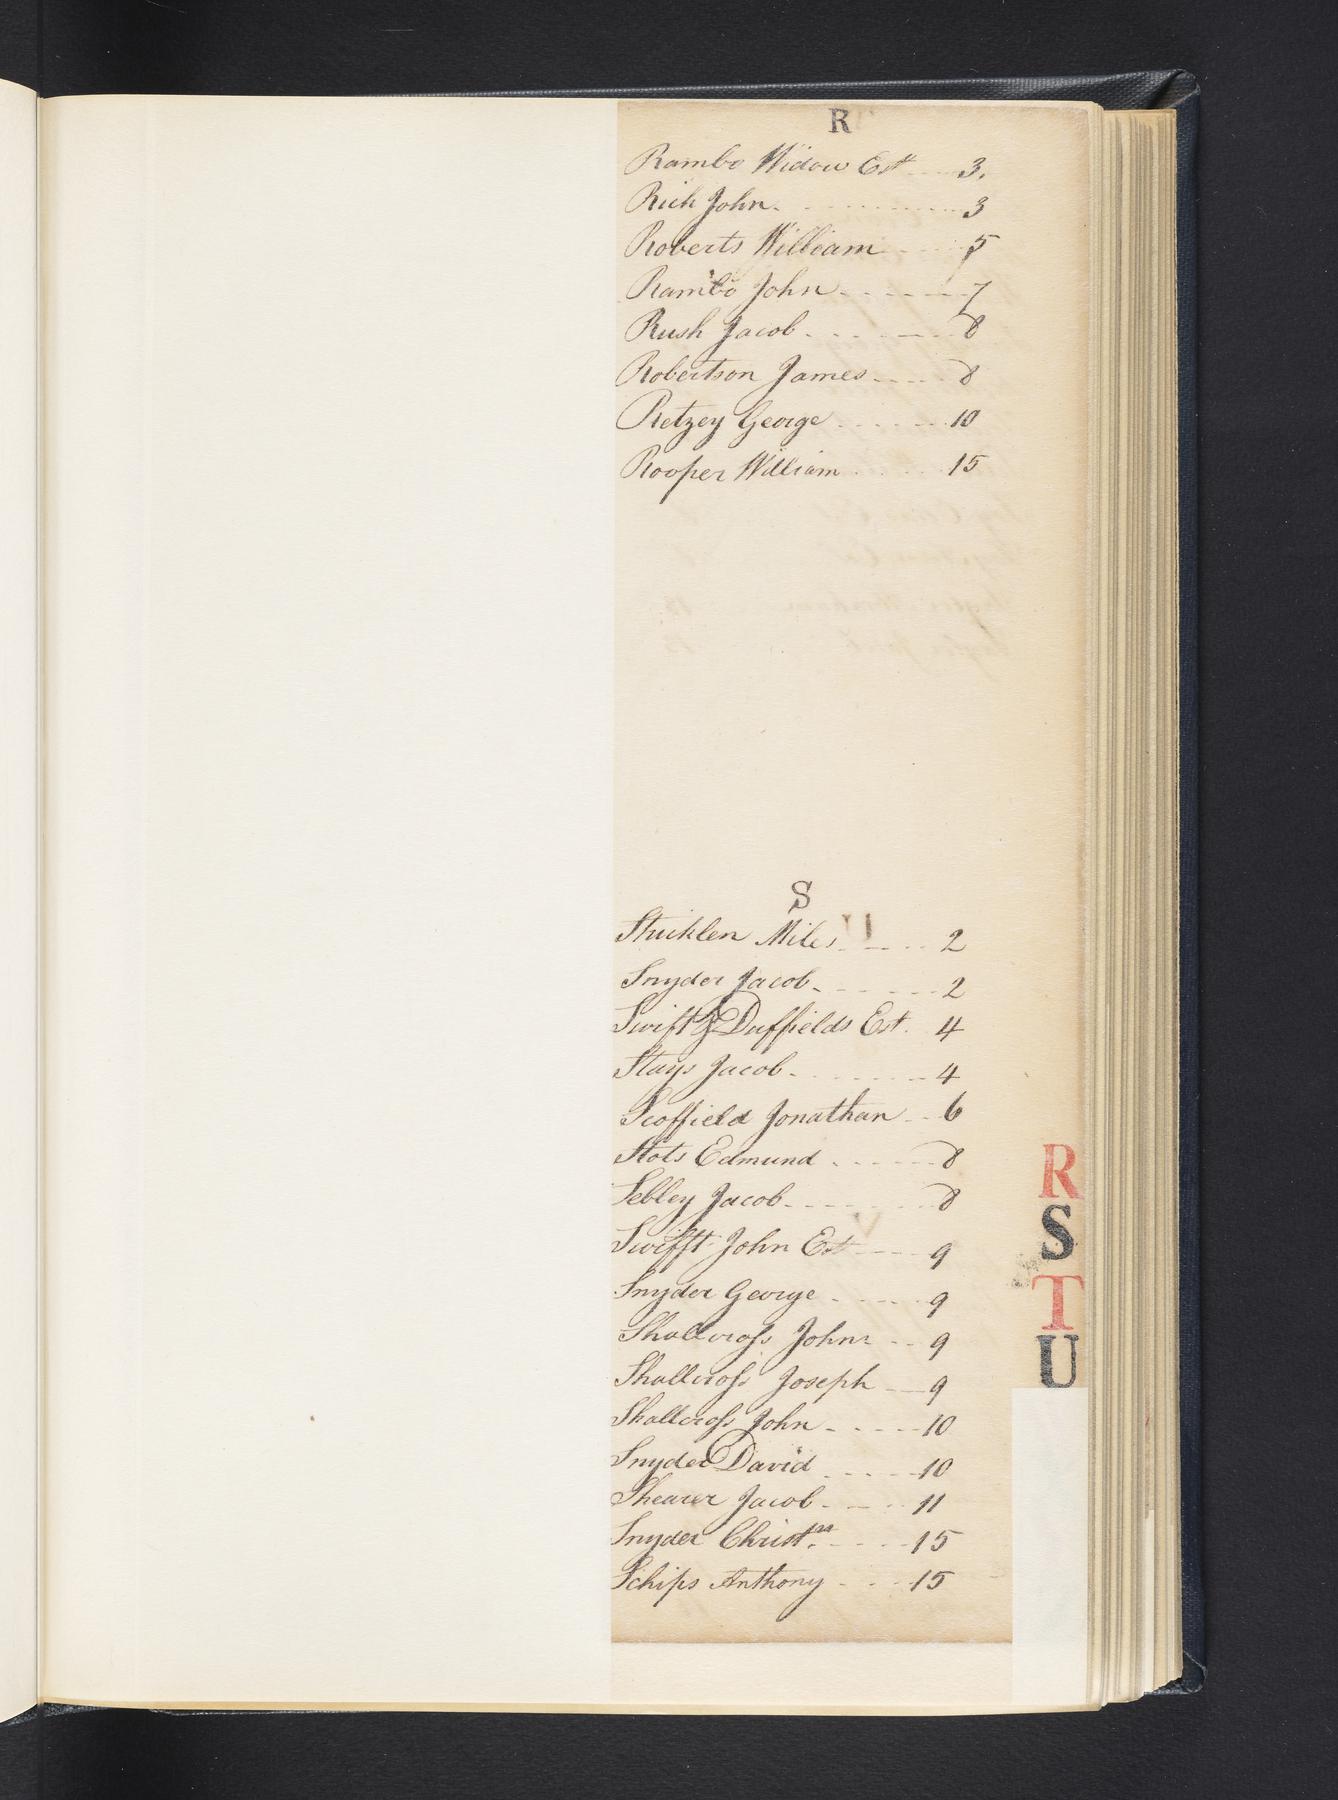 R
Rambo Widow Est 3.
Rich John 3
Roberts William 5
Rambo John 7
Rush Jacob 8
Robertson James 8
Retzey George 10
Rooper William 15
S
Stricklen Miles 2
Snyder Jacob 2
Swift & Duffields Est. 4
Stays Jacob 4
Scoffield Jonathan 6
Stots Edmund 8
Sebley Jacob 8
Swifft John Est 9
Snyder George 9
Shallcross John 9
Shallcross Joseph 9
Shallcross John 10
Snyder David 10
Shearer Jacob 11
Snyder Christn. 15
Schips Anthony 15
R
S
T
U